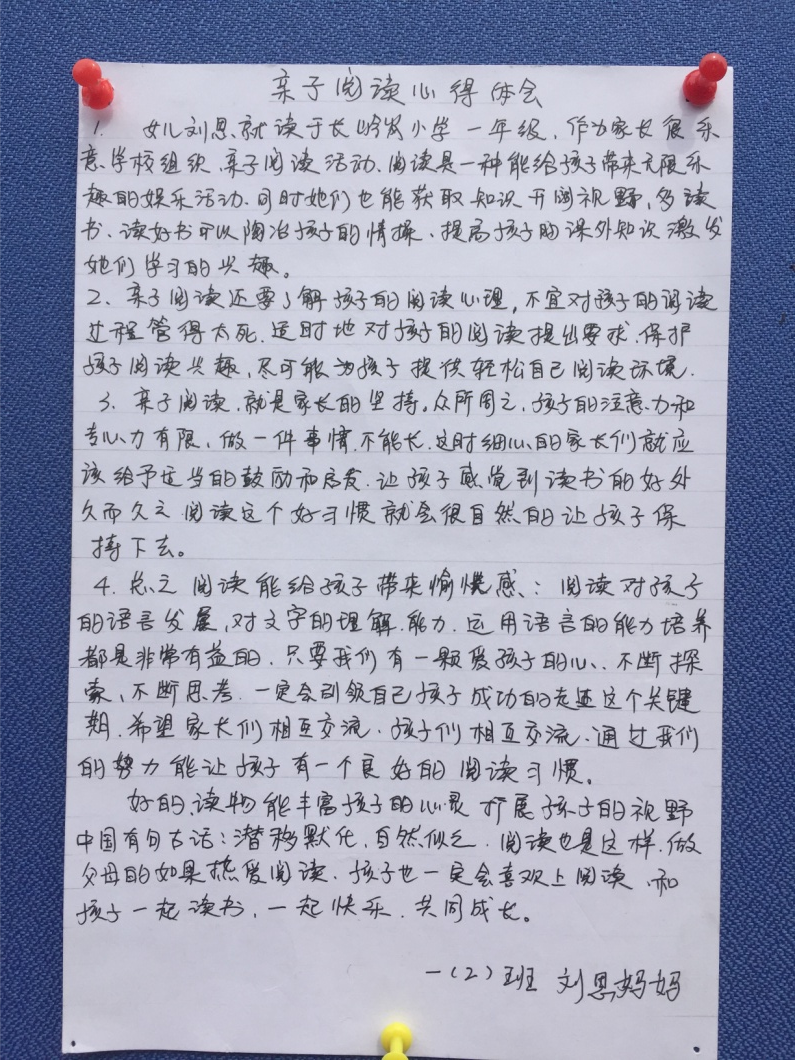 亲子阅读心得体会
1. 女儿刘恩就读于长岭岗小学一年级，作为家长很乐
意学校组织.亲子阅读活动.阅读是一种能给孩子带来无限乐
趣的娱乐活动.同时她们也能获取知识开阔视野,多读
书.读好书可以陶冶孩子的情操、提高孩子的课外知识激发
她们学习的兴趣。
2、亲子阅读还要了解孩子的阅读心理，不宜对孩子的阅读
过程管得太死.适时地对孩子的阅读提出要求.保护
孩子阅读兴趣,尽可能为孩子提供轻松自己阅读环境.
3、亲子阅读.就是家长的坚持。众所周之,孩子的注意力和
专心力有限，做一件事情.不能长.这时细心的家长们就应
该给予适当的鼓励和启发.让孩子感觉到读书的好处
久而久之阅读这个好习惯就会很自然的让孩子保
持下去。
4.总之阅读能给孩子带来愉惯感.：阅读对孩子
的语言发展,对文字的理解.能力.运用语言的能力培养
都是非常有益的.只要我们有一颗爱孩子的心、不断探
索、不断思考.一定会引领自己孩子成功的走过这个关键
期.希望家长们相互交流.孩子们相互交流.通过我们
的努力能让孩子有一个良好的阅读习惯。
好的.读物能丰富孩子的心灵扩展孩子的视野
中国有句古话：潜移默化.自然似之.阅读也是这样.做
父母的如果热爱阅读.孩子也一定会喜欢上阅读.和
孩子一起读书.一起快乐.共同成长。
一(2)班 刘恩妈妈